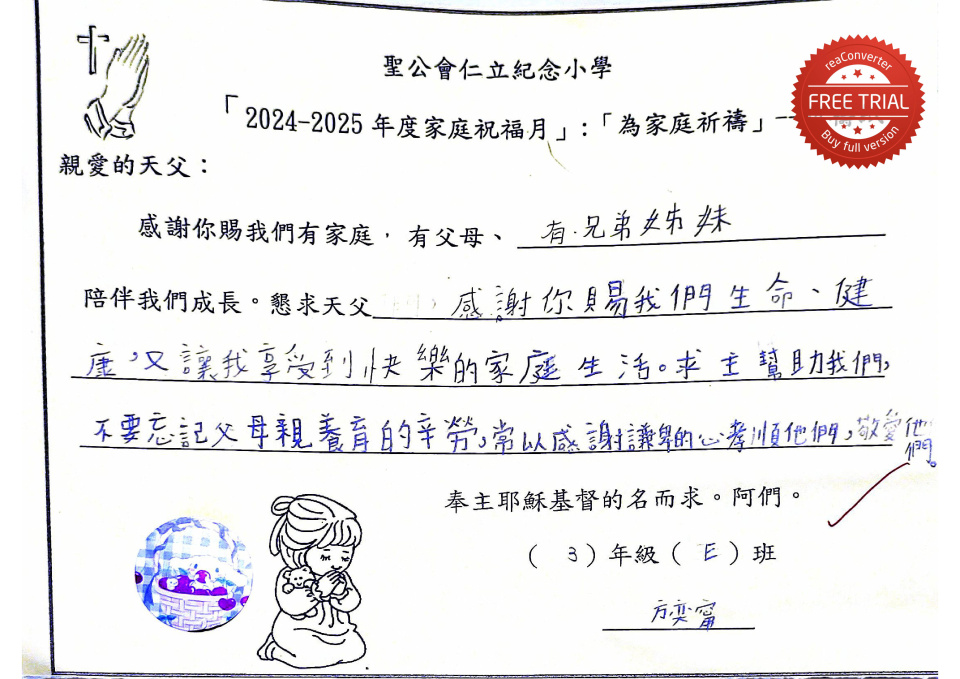 聖公會仁立紀念小學
「2024-2025 年度家庭祝福月」:「為家庭祈禱」--
reaConverter
FREE TRIAL
Buy full version
親愛的天父：
感謝你賜我們有家庭，有父母、有兄弟姊妹
陪伴我們成長。懇求天父 感謝你賜我們生命、健
康，又讓我享受到快樂的家庭生活。求主幫助我們，
不要忘記父母親養育的辛勞，常以感謝謙卑的心孝順他們，敬愛他
們。
奉主耶穌基督的名而求。阿們。
（ 3 ）年級（ E ）班
方奕甯